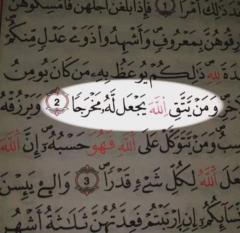 ذَٰلِكَ أَمْرًا ۝١ فَإِذَا بَلَغْنَ أَجَلَهُنَّ فَأَمْسِكُوهُنَّ
رِقُوهُنَّ بِمَعْرُوفٍ وَأَشْهِدُوا ذَوَيْ عَدْلٍ مِّنكُمْ
دَةَ لِلَّهِ ذَٰلِكُمْ يُوعَظُ بِهِ مَن كَانَ يُؤْمِنُ
خِرِ وَمَن يَتَّقِ اللَّهَ يَجْعَل لَّهُ مَخْرَجًا ۝٢ وَيَرْزُقْهُ
سِبُ وَمَن يَتَوَكَّلْ عَلَى اللَّهِ فَهُوَ حَسْبُهُ إِنَّ اللَّهَ
عَلَ اللَّهُ لِكُلِّ شَيْءٍ قَدْرًا ۝٣ وَالَّٰٓـِٔي يَئِسْنَ
نِسَائِكُمْ إِنِ ارْتَبْتُمْ فَعِدَّتُهُنَّ ثَلَاثَةُ أَشْهُرٍ